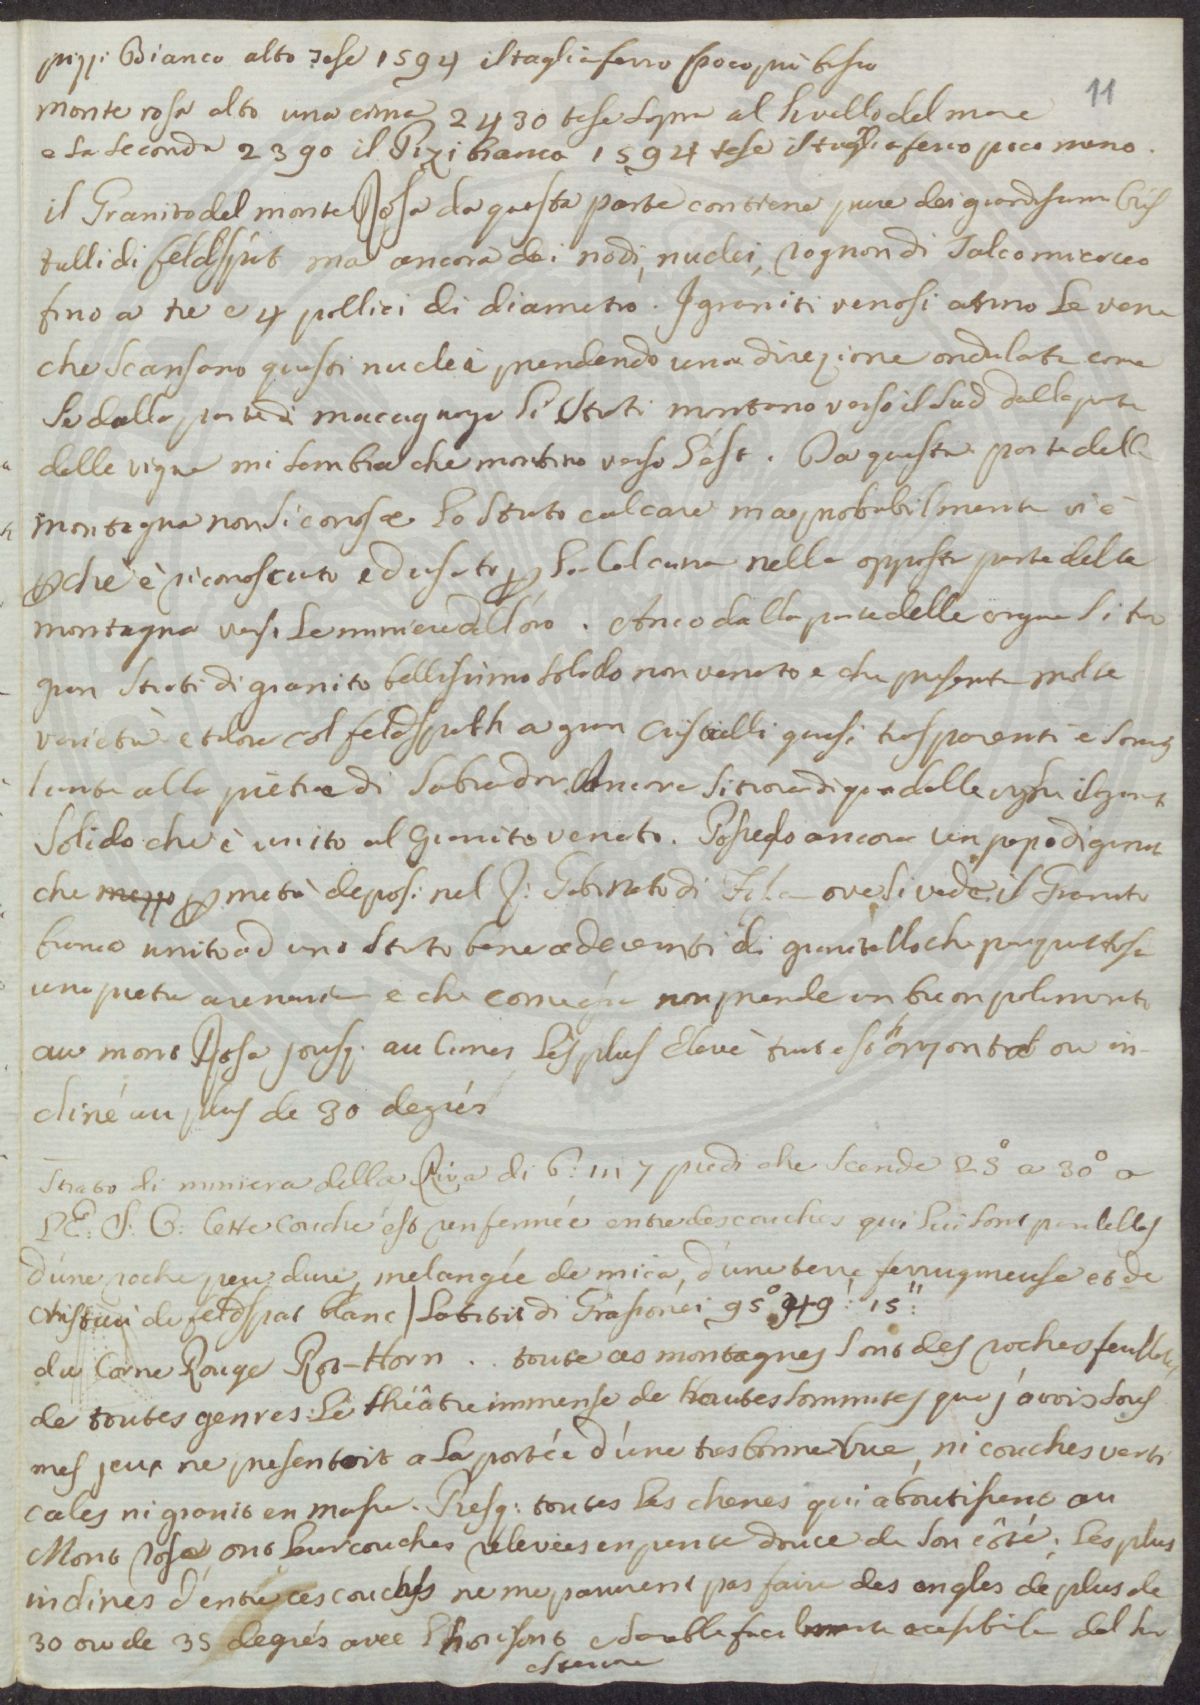 pizzi Bianco alto Tese 1594 il tagliaferro poco più basso
11
monte rosa alto una cima 2430 tese sopra al livello del mare
e la seconda 2390 il Pizzi bianco 1594 tese il tagliaferro poco meno.
il Granito del monte Rosa da questa parte contiene pure dei grandissimi Cris
talli di feldspat ma ancora dei nodi, nuclei, rognon di Talco micaceo
fino a tre e 4 pollici di diametro. I graniti venosi anno le vene
che scansano questi nuclei prendendo una direzione ondulata come
Se dalla parte di macugnaga li Strati montano verso il Sud dalla parte
delle vigne mi sembra che montino verso l'est. Da questa parte della
montagna non si conosce lo Strato calcare ma probabilmente vi è
perche è riconosciuto ed usato per la Calcina nella opposta parte della
montagna verso le miniere dell'oro. Anco dalla parte delle vigne si tro
van Strati di granito bellissimo solido non venato e che presenta molte
varietà e talora col feldspath a gran Cristalli quasi trasparenti e somig
liante alla pietra di Labrador. Ancora si trova di qua dalle vigne il granit
Solido che è unito al Granito venato. Possiedo ancora un pezzo di granit
che mezzo per metà deposi nel Gabinetto di ove si vede il Granito
bianco unito ad uno Strato bene aderente di granitello che par piuttosto
una pietra arenaria e che non prende un buon pulimento
au mont Rosa jusq. au cimes les plus elevé tout est horyontal ou in-
cliné au plus de 30 degrés
Strato di miniera della Riva di 6: in 7 piedi che scende 25° a 30° a
l'E. S. E. Cette couche est renfermée entre des couches qui lui sont paralelles
d'une roche peu dure, melangée de mica, d'une terre ferrugineuse et de
cristaux de feldspat blanc / Latitit di Grasoney 95° 49' 15''
du Corne Rouge Rot-Horn .. toute ces montagnes sont des roches feuilletées
de toutes genres. Le théâtre immense de hautes sommites que j'avois sous
mes jeux ne presentoit a la portée d'une tres bonne vue, ni couches verti
cales ni granit en masse. Presq: toutes les chenes qui aboutissent au
Mont rose ont leur couches relevées en pente douce de son côté. Les plus
indines d'entre ces couches ne me parurent pas faire des angles de plus de
30 ou de 35 degrés avec l'horisont